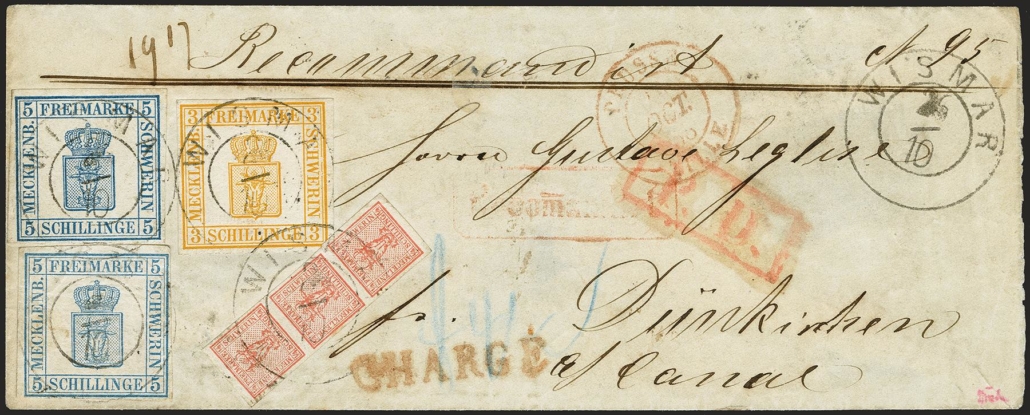 1917 Recommandirt N 95
5 FREIMARKE 5
MECKLENB. SCHWERIN
5 SCHILLINGE 5
3 FREIMARKE 3
SCHWERIN
3 SCHILLINGE 3
5 FREIMARKE 5
MECKLENB. SCHWERIN
5 SCHILLINGE 5
WISMAR
WISMAR
WISMAR
WISMAR
10
OCT.
Herrn Gustave Leglise
P. D.
fr. Dünkirchen
CHARGÉ
s/Canal